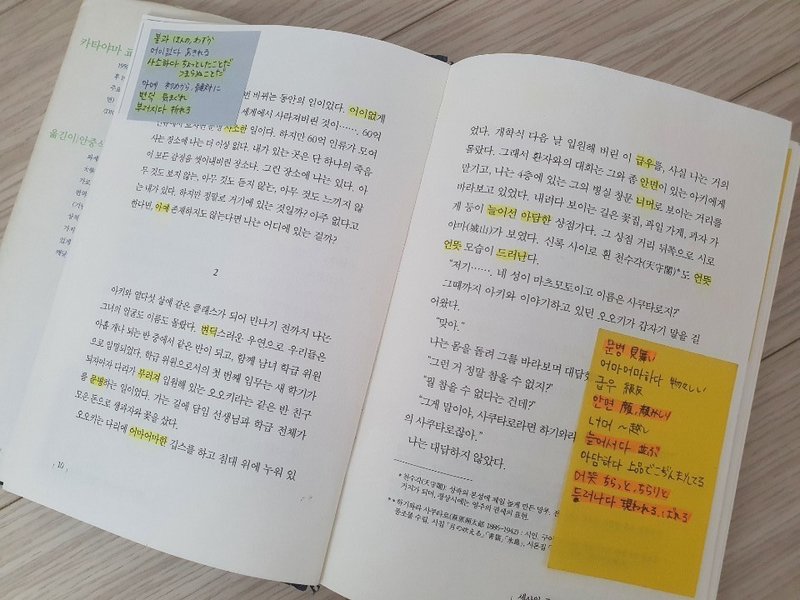 카타야마 쿄
옮긴이 | 안중식
불과 ほんの、わずか
어이없다 あきれる
사소하다 ちょっとしたことだ
つまらぬことだ
아예 初めから、絶対に
변덕 気まぐれ
부러지다 折れる
번 바뀌는 동안의 일이다. 어이없게
세계에서 사라져버린 것이……. 60억
인류에게서 보자면 사소한 일이다. 하지만 60억 인류가 모여
사는 장소에 나는 더 이상 없다. 내가 있는 곳은 단 하나의 죽음
이 모든 감정을 씻어내버린 장소다. 그런 장소에 나는 있다. 아
무 것도 보지 않는, 아무 것도 듣지 않는, 아무 것도 느끼지 않
는 내가 있다. 하지만 정말로 거기에 있는 것일까? 아주 없다고
한다면, 아예 존재하지도 않는다면 나는 어디에 있는 걸까?
2
아키와 열다섯 살에 같은 클래스가 되어 만나기 전까지 나는
그녀의 얼굴도 이름도 몰랐다. 변덕스러운 우연으로 우리들은
아홉 개나 되는 반 중에서 같은 반이 되고, 함께 남녀 학급 위원
으로 임명되었다. 학급 위원으로서의 첫 번째 임무는 새 학기가
되자마자 다리가 부러져 입원해 있는 오오키라는 같은 반 친구
를 문병하는 일이었다. 가는 길에 담임 선생님과 학급 전체가
모은 돈으로 생과자와 꽃을 샀다.
오오키는 다리에 어마어마한 깁스를 하고 침대 위에 누워 있
| 10 |
었다. 개학식 다음 날 입원해 버린 이 급우를, 사실 나는 거의
몰랐다. 그래서 환자와의 대화는 그와 좀 안면이 있는 아키에게
맡기고, 나는 4층에 있는 그의 병실 창문 너머로 보이는 거리를
바라보고 있었다. 내려다 보이는 길은 꽃집, 과일 가게, 과자 가
게 등이 늘어선 아담한 상점가다. 그 상점 거리 뒤쪽으로 시로
야마(城山)가 보였다. 신록 사이로 흰 천수각(天守閣)*도 언뜻
언뜻 모습이 드러난다.
"저기……, 네 성이 마츠모토이고 이름은 사쿠타로지?"
그때까지 아키와 이야기하고 있던 오오키가 갑자기 말을 걸
어왔다.
"맞아."
나는 몸을 돌려 그를 바라보며 대답했
"그런 거 정말 참을 수 없지?"
"뭘 참을 수 없다는 건데?"
"그게 말이야, 사쿠타로라면 하기와라
의 사쿠타로잖아."
나는 대답하지 않았다.
문병 見舞い
어마어마하다 物々しい
급우 級友
안면 顔、顔見知り
너머 ~越し
늘어서다 並ぶ
아담하다 上品でこぢんまりしてる
언뜻 ちらっと、ちらりと
드러나다 現われる、ばれる
* 천수각(天守閣): 성곽의 본성에 제일 높게 만든 망루. 전
** 하기와라 사쿠타로(萩原朔太郎 1886~1942) : 시인. 구어